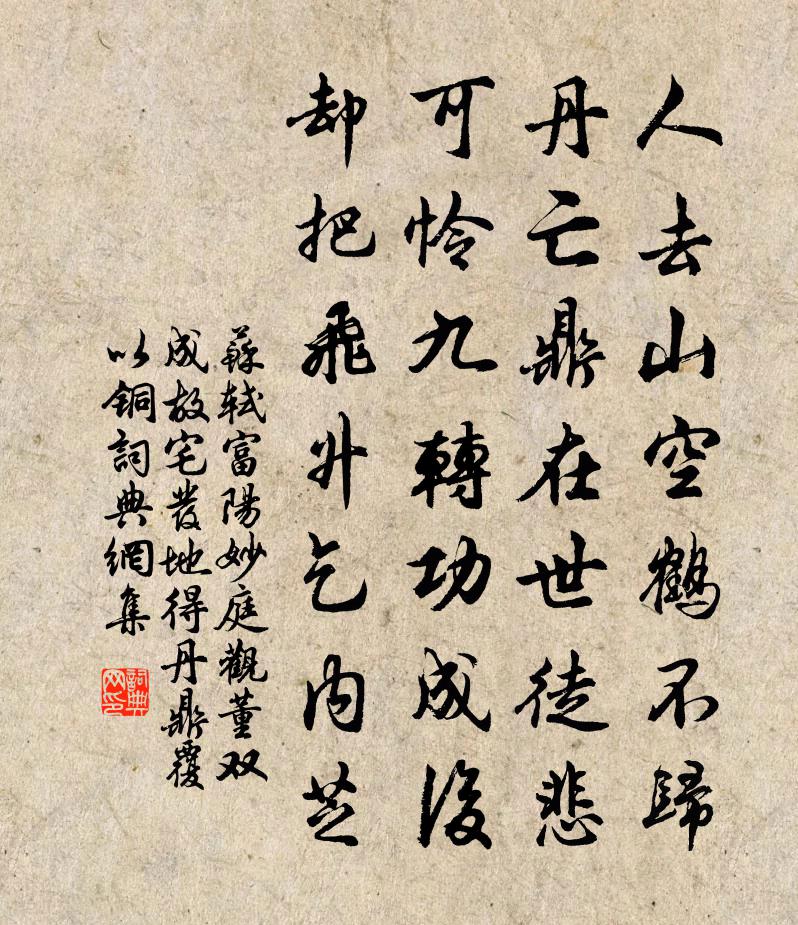 人去山空鶴不歸
丹亡鼎在世徒悲
可憐九轉功成後
却把飛升乞内芝
蘇軾富陽妙庭觀董双
成故宅發地得丹鼎覆
以铜詞典網集
詞典网印